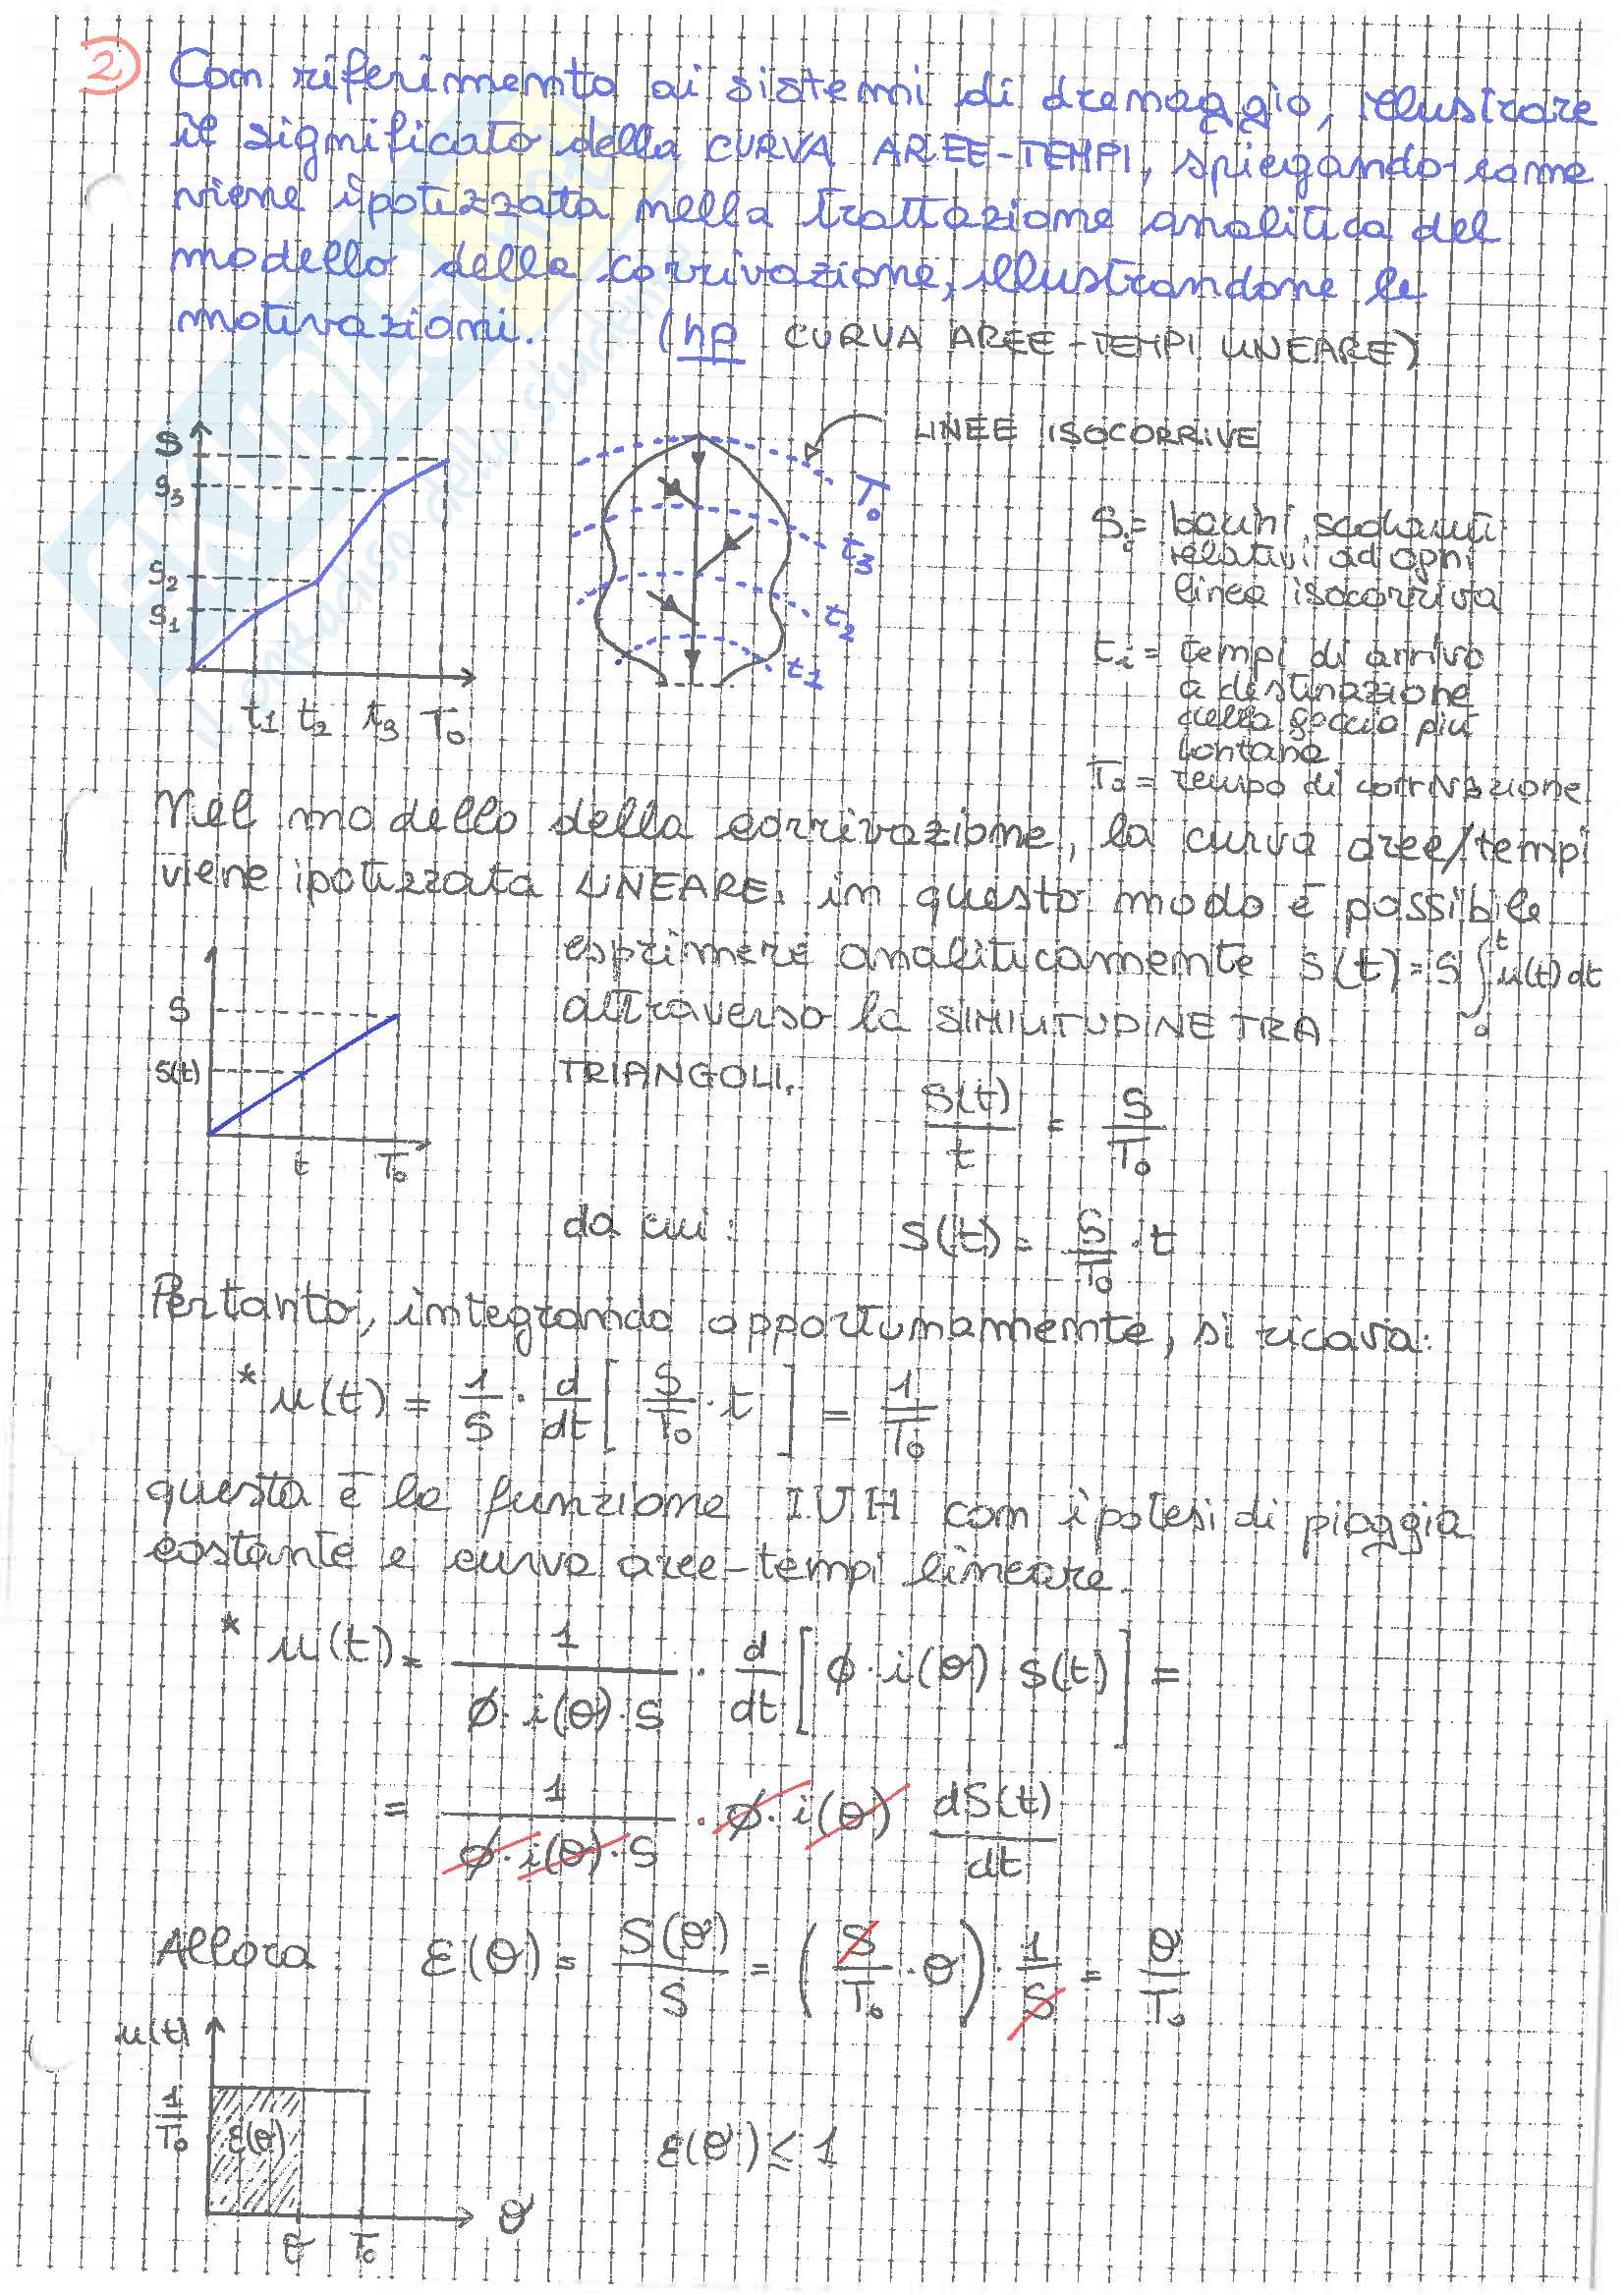 2) Con riferimento ai sistemi di drenaggio, illustrare
il significato della CURVA AREE-TEMPI, spiegando come
viene ipotizzata nella trattazione analitica del
modello della corrivazione, illustrandone le
motivazioni. (hp CURVA AREE-TEMPI LINEARE)
LINEE ISOCORRIVE
S
S3
S2
S1
t1 t2 t3 T0
T0
t3
t2
t1
Si = bacini scolanti
relativi ad ogni
linea isocorriva
ti = tempi di arrivo
a destinazione
della goccia più
lontana
T0 = tempo di corrivazione
Nel modello della corrivazione, la curva aree/tempi
viene ipotizzata LINEARE. in questo modo è possibile
esprimere analiticamente S(t) = S ∫₀ᵗ u(t) dt
attraverso la SIMILITUDINE TRA
TRIANGOLI.
S
S(t)
t T0
S(t)/t = S/T0
da cui: S(t) = S/T0 · t
Pertanto, integrando opportunamente, si ricava:
* u(t) = 1/S · d/dt [ S/T0 · t ] = 1/T0
questa è la funzione IUH con ipotesi di pioggia
costante e curva aree-tempi lineare.
* u(t) = 1/(ϕ · i(θ) · S) · d/dt [ϕ · i(θ) S(t)] =
= 1/(ϕ · i(θ) · S) · ϕ · i(θ) dS(t)/dt
Allora ε(θ) = S(θ)/S = (S/T0 · θ) · 1/S = θ/T0
u(t)
1/T0
ε(θ)
ε(θ) ≤ 1
θ
θ T0